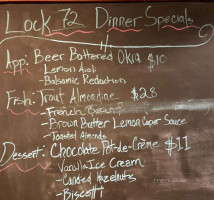 Lock 72 Dinner Specials
App: Beer Battered Okra $10
- Lemon Aioli
- Balsamic Reduction
Fish: Trout Almondine $28
- French Beans
- Brown Butter Lemon Caper Sauce
- Toasted Almonds
Dessert: Chocolate Pot-de-Crème $11
- Vanilla Ice Cream
- Candied Hazelnuts
- Biscotti